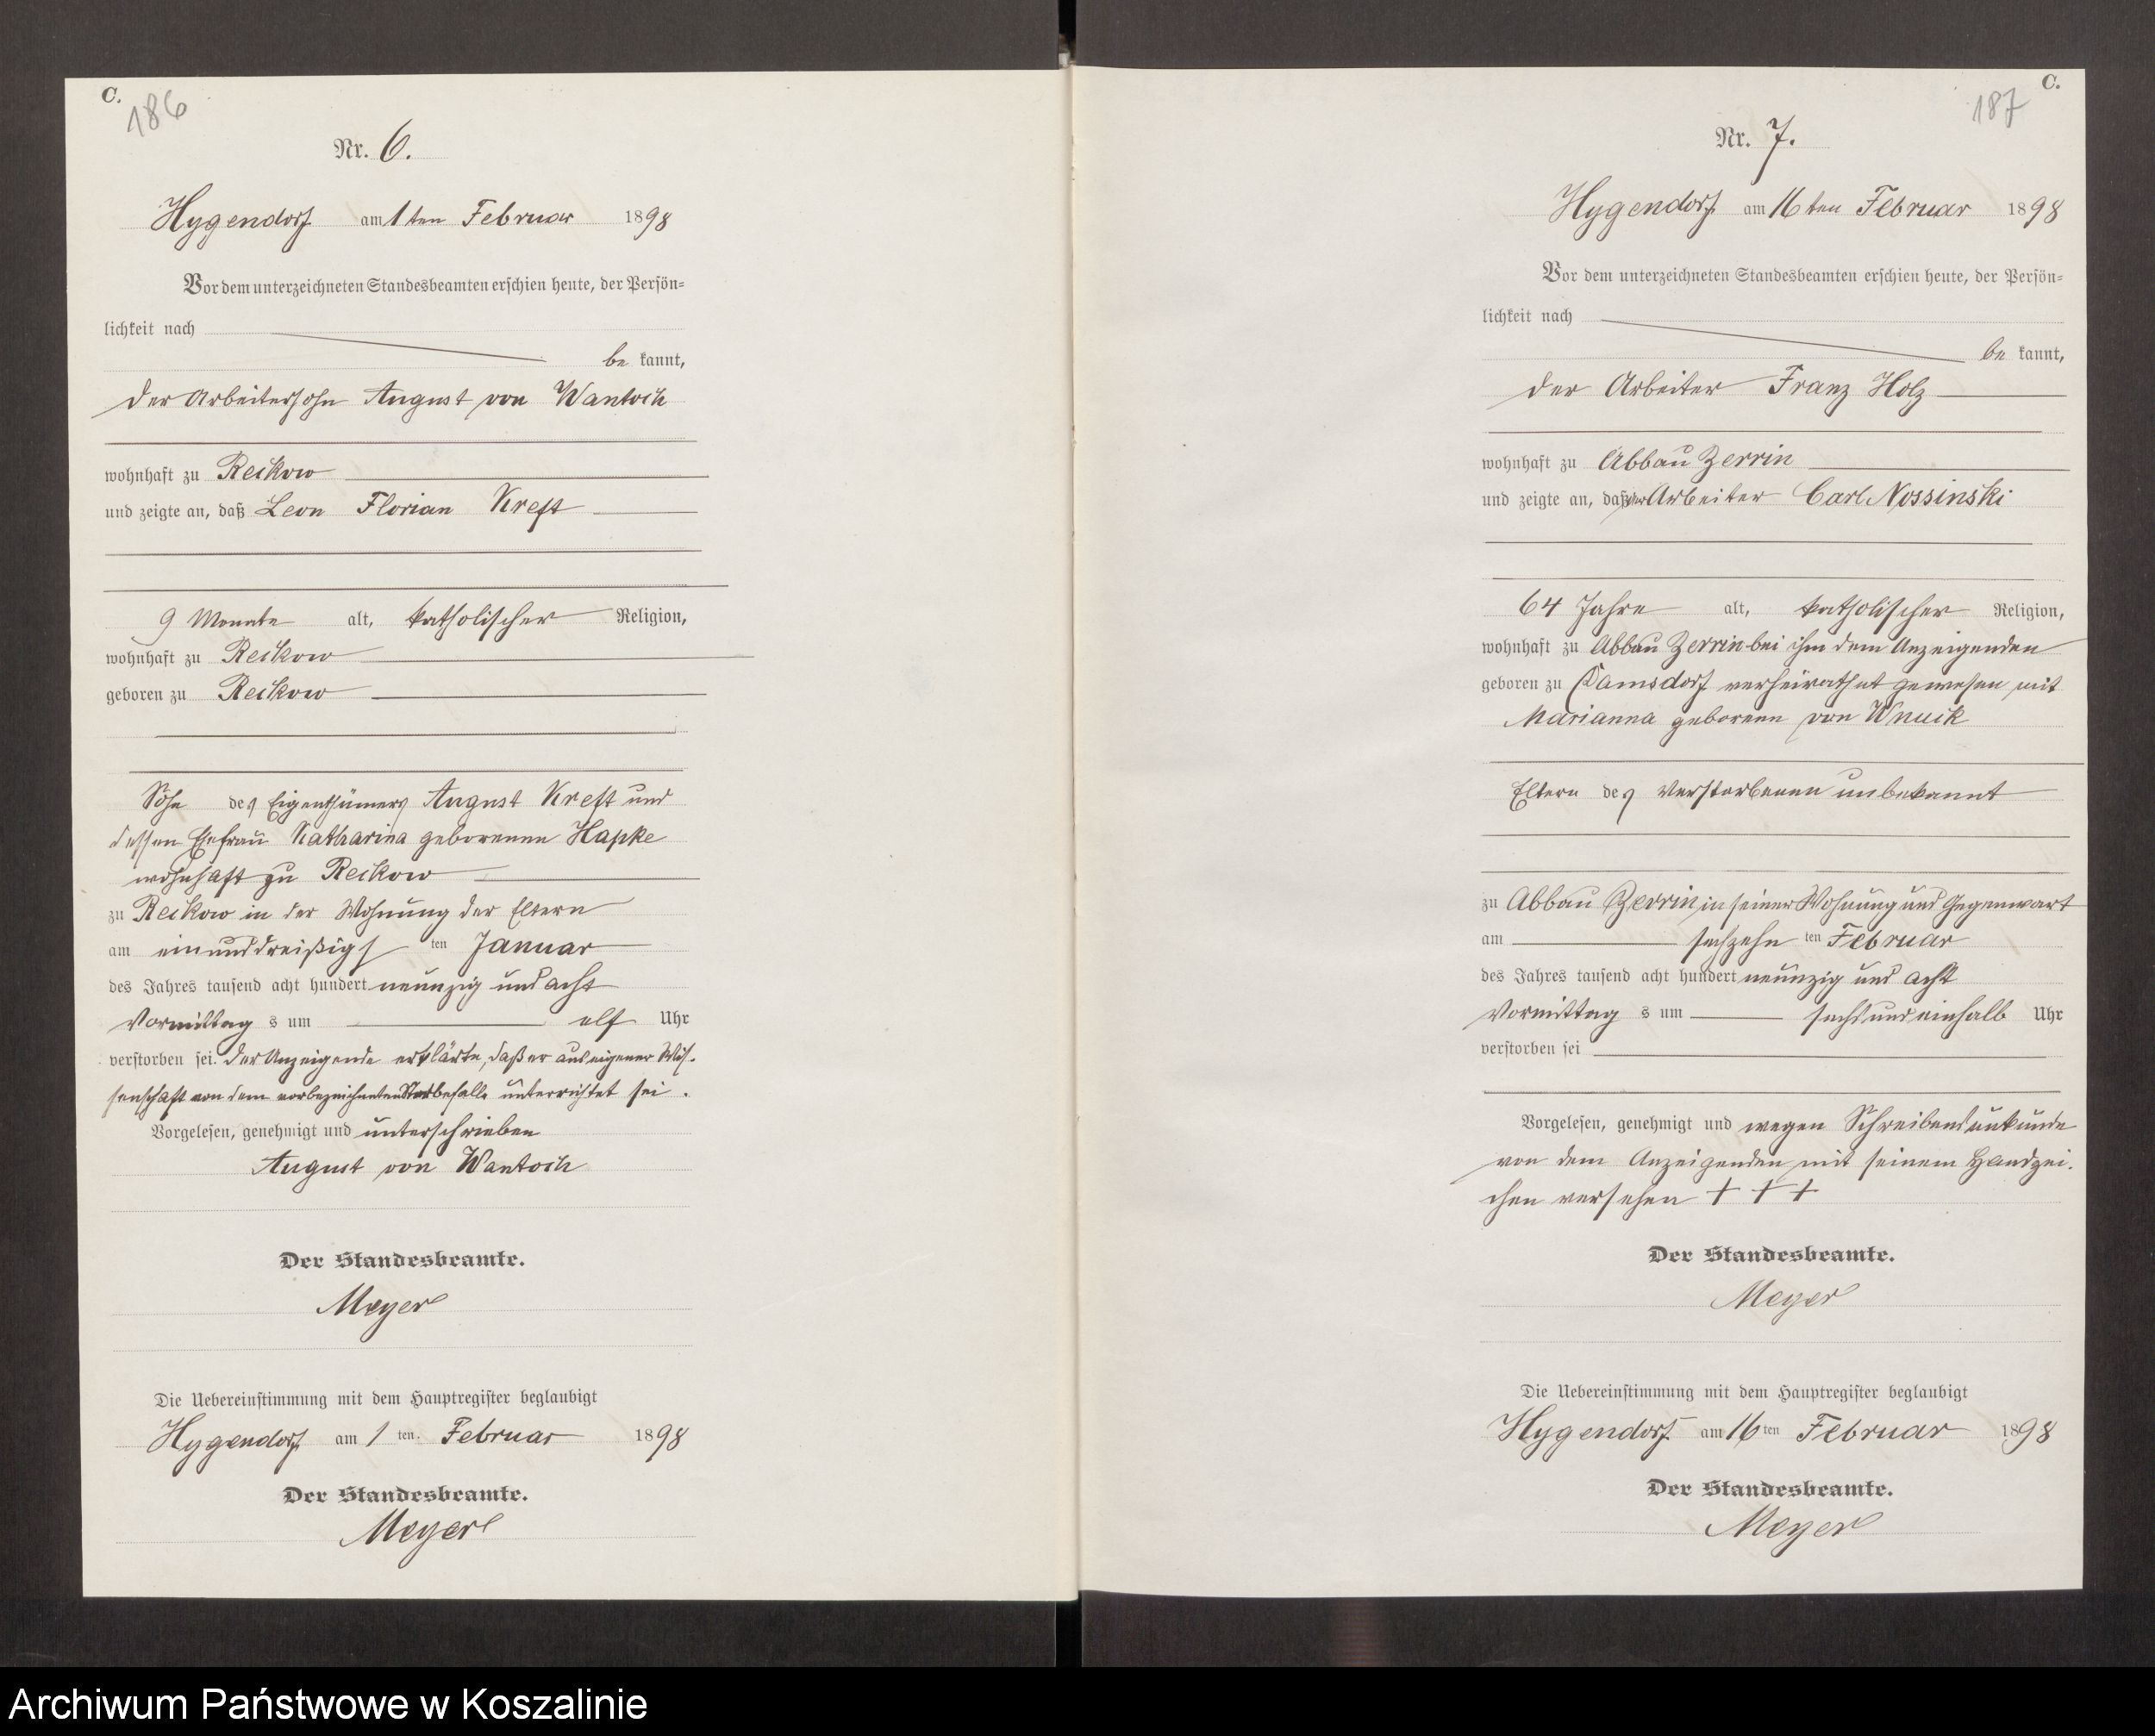 C.
186
Nr. 6.
Hygendorf am 1ten Februar 1898
Vor dem unterzeichneten Standesbeamten erschien heute, der Persön-
lichkeit nach
be kannt,
der Arbeitersohn August von Wantoch
wohnhaft zu Reckow
und zeigte an, daß Leon Florian Kreft
9 Monate alt, katholischer Religion,
wohnhaft zu Reckow
geboren zu Reckow
Sohn des Eigenthümers August Kreft und
dessen Ehefrau Katharina geborenen Hapke
wohnhaft zu Reckow
zu Reckow in der Wohnung der Eltern
am einunddreißigs ten Januar
des Jahres tausend acht hundert neunzig und acht
Vormittag s um elf Uhr
verstorben sei. Der Anzeigende erklärte, daß er aus eigener Wis-
senschaft von dem vorbezeichneten Sterbefalle unterrichtet sei.
Vorgelesen, genehmigt und unterschrieben
August von Wantoch
Der Standesbeamte.
Meyer
Die Uebereinstimmung mit dem Hauptregister beglaubigt
Hygendorf am 1 ten Februar 1898
Der Standesbeamte.
Meyer
C.
187
Nr. 7.
Hygendorf am 16ten Februar 1898
Vor dem unterzeichneten Standesbeamten erschien heute, der Persön-
lichkeit nach
be kannt,
der Arbeiter Franz Holz
wohnhaft zu Abbau Zerrin
und zeigte an, daß der Arbeiter Carl Nossinski
64 Jahre alt, katholischer Religion,
wohnhaft zu Abbau Zerrin bei ihm dem Anzeigenden
geboren zu Damsdorf verheirathet gewesen mit
Marianna geborenen von Wnuck
Eltern des Verstorbenen unbekannt
zu Abbau Zerrin in seiner Wohnung und Gegenwart
am sechzehn ten Februar
des Jahres tausend acht hundert neunzig und acht
Vormittag s um sechs und einhalb Uhr
verstorben sei
Vorgelesen, genehmigt und wegen Schreibensunkunde
von dem Anzeigenden mit seinem Handzei-
chen versehen + + +
Der Standesbeamte.
Meyer
Die Uebereinstimmung mit dem Hauptregister beglaubigt
Hygendorf am 16 ten Februar 1898
Der Standesbeamte.
Meyer
Archiwum Państwowe w Koszalinie